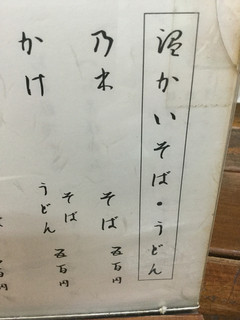 温かいそば・うどん
乃木 そば 五百円
かけ そば うどん 五百円
百円